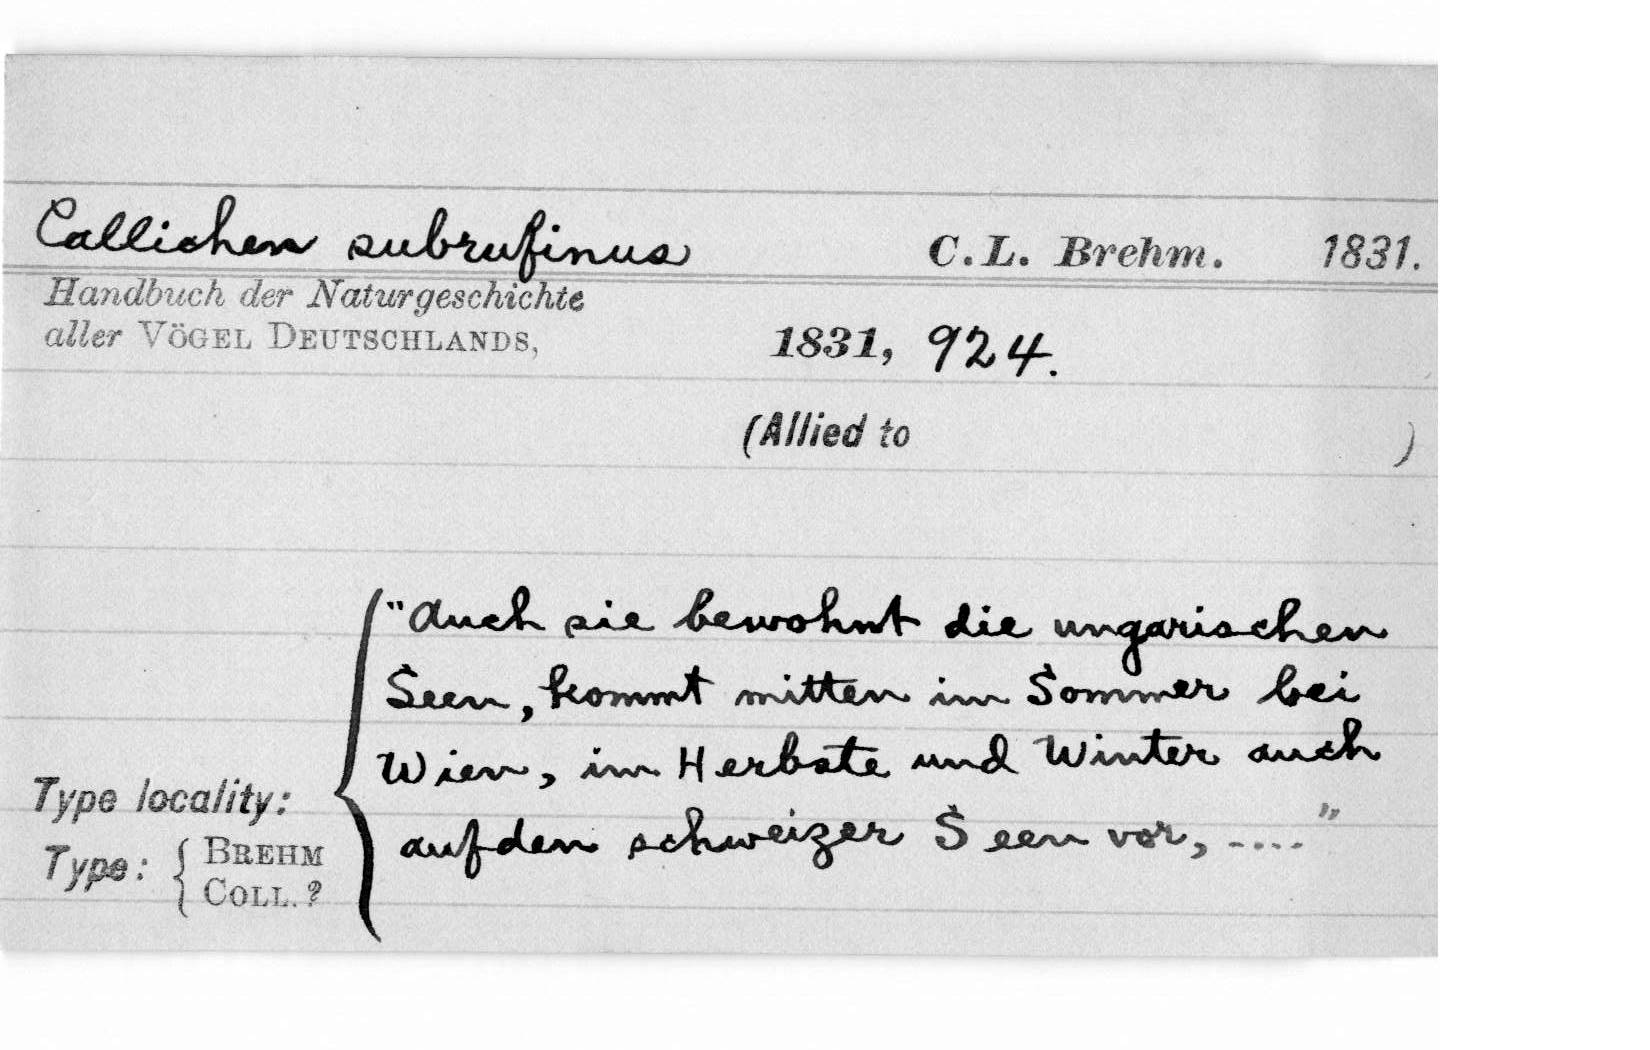 Callichen subrufinus C.L. Brehm. 1831.
Handbuch der Naturgeschichte
aller VÖGEL DEUTSCHLANDS, 1831, 924.
(Allied to )
"Auch sie bewohnt die ungarischen
Seen, kommt mitten im Sommer bei
Wien, im Herbste und Winter auch
Type locality:
auf den schweizer Seen vor, ....."
Type: { BREHM
COLL. ?